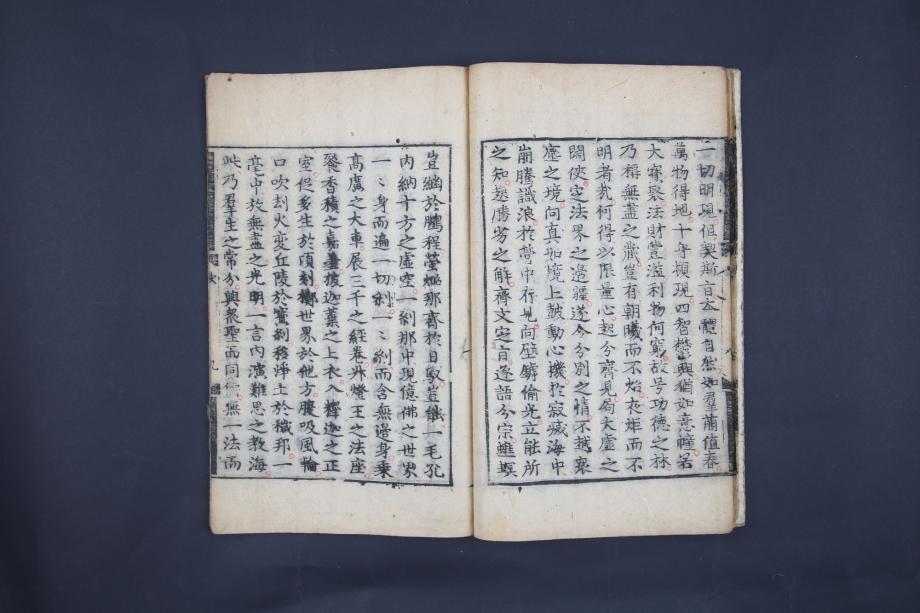 一切明現但契斯旨本體自然如羣萠值春
萬物得地十身頓現四智欝興猶如意幢若
大寳聚法財豐溢利物何窮故号功德之林
乃稱無盡之藏豈有朝曦而不炤夜炸而不
明者哉何得以限量心起分齊見局太虛之
闊狹定法界之邊疆遂令分別之情不越衆
塵之境向真如境上皷動心機於寂滅海中
崩騰識浪於管中行見向壁罅偷光立能所
之知起勝劣之解齊文定旨逐語分宗蟭螟
豈繼於鵬程螢熖那齊於日馭豈能一毛孔
内納十方之虛空一剎那中現億佛之世界
一〻身而遍一切剎一〻剎而含無邊身乗
高廣之大車展三千之經卷升燈王之法座
飡香積之嘉羹披迦葉之上衣入釋迦之正
室促多生於頃刻擲世界於他方腹吸風輪
口吹刼火变丘陵於寳剎移淨土於穢邦一
毫中放無盡之光明一言内演難思之教海
此乃羣生之常分與衆聖而同無一法而
九